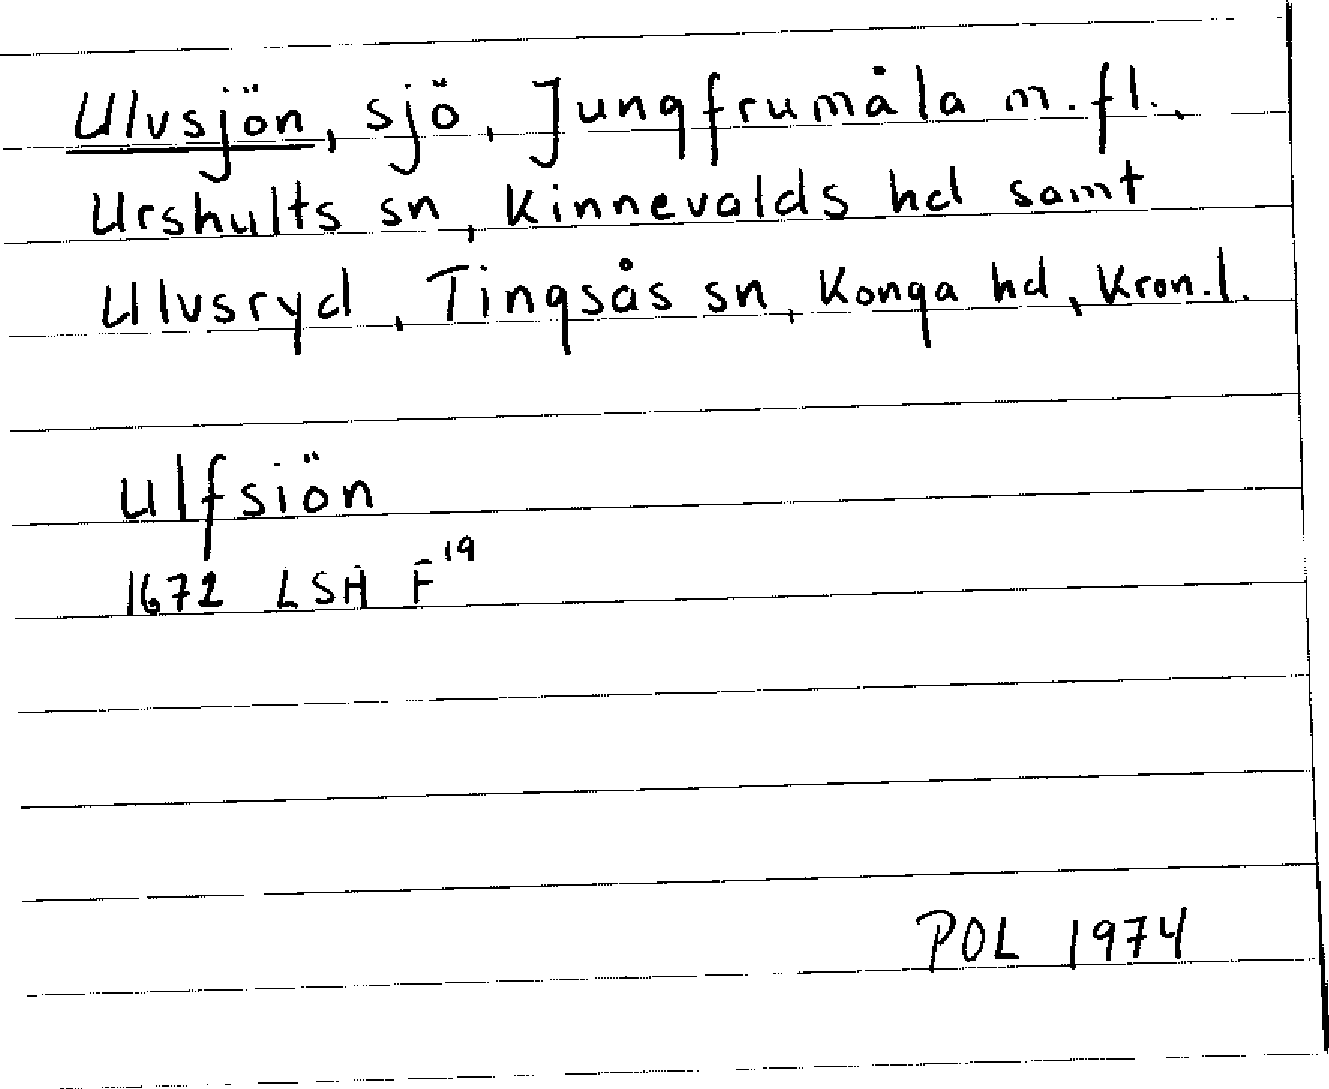 Ulvsjön, sjö, Jungfrumåla m.fl.,
Urshults sn, Kinnevalds hd samt
Ulvsryd, Tingsås sn, Konga hd, Kron.l.
Ulfsiön
1672 LSH F19
POL 1974